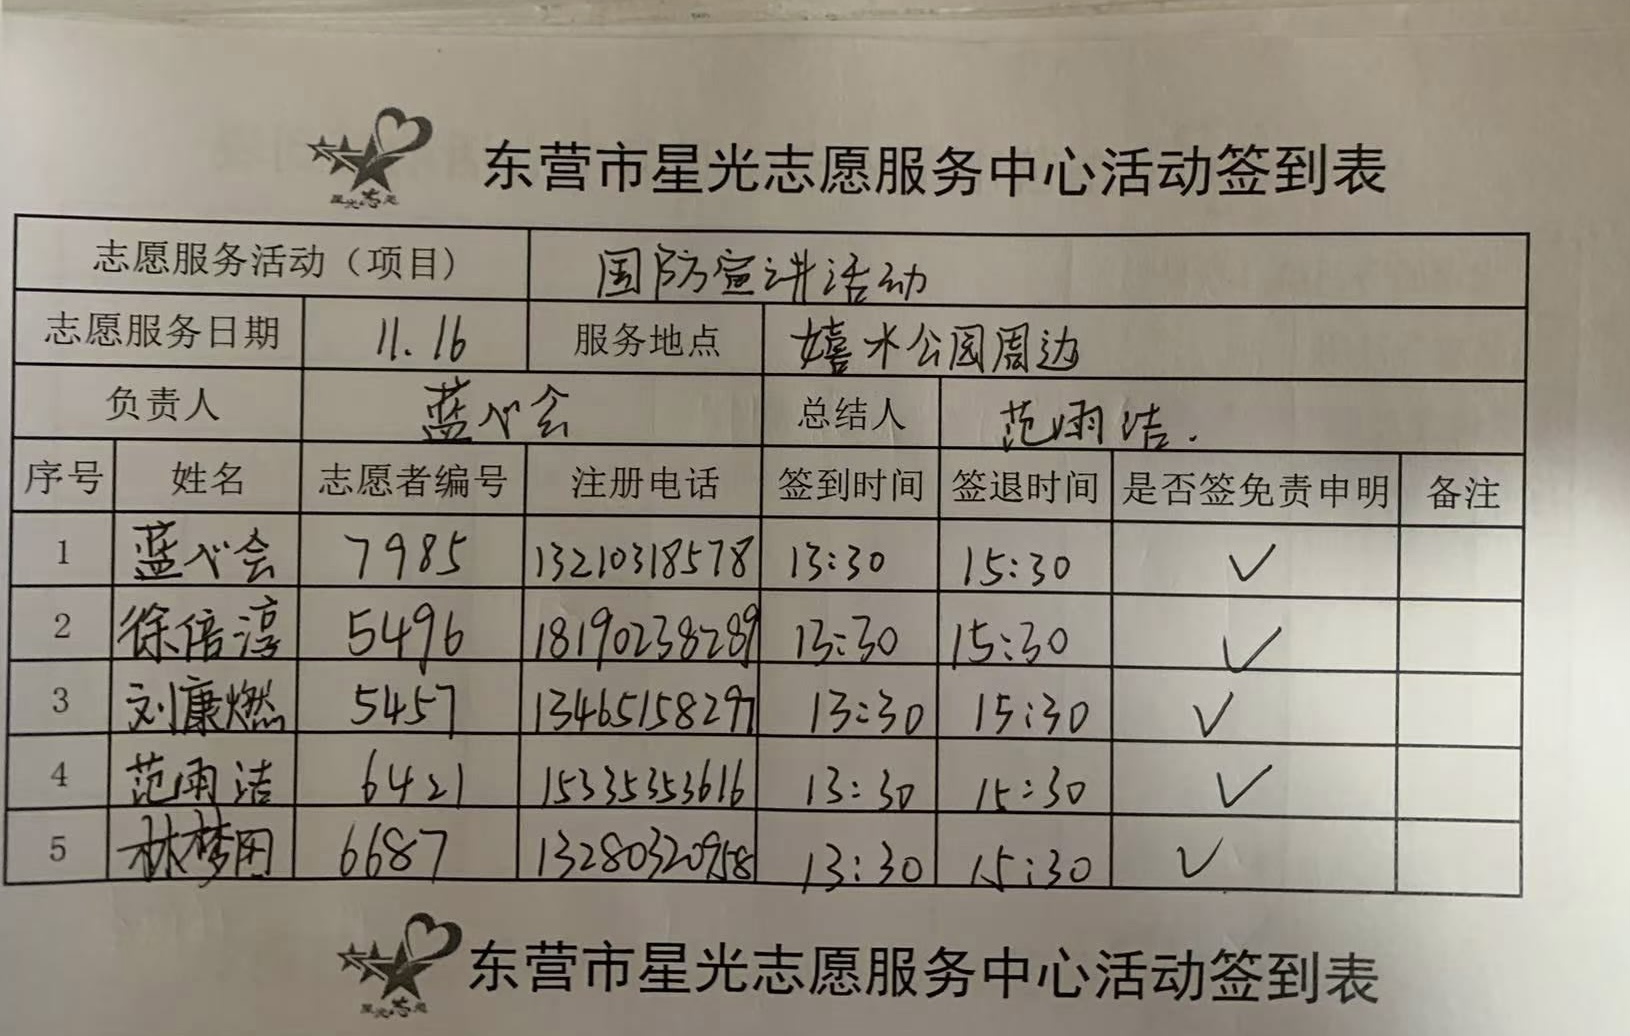 东营市星光志愿服务中心活动签到表
志愿服务活动（项目） 国防宣讲活动
志愿服务日期 11.16 服务地点 嬉水公园周边
负责人 蓝心会 总结人 范雨洁.
序号 姓名 志愿者编号 注册电话 签到时间 签退时间 是否签免责申明 备注
1 蓝心会 7985 13210318578 13:30 15:30 ✓
2 徐倍淳 5496 18190238289 13:30 15:30 ✓
3 刘康燃 5457 13465158297 13:30 15:30 ✓
4 范雨洁 6421 15335353616 13:30 15:30 ✓
5 林梦田 6687 13280320958 13:30 15:30 ✓
东营市星光志愿服务中心活动签到表